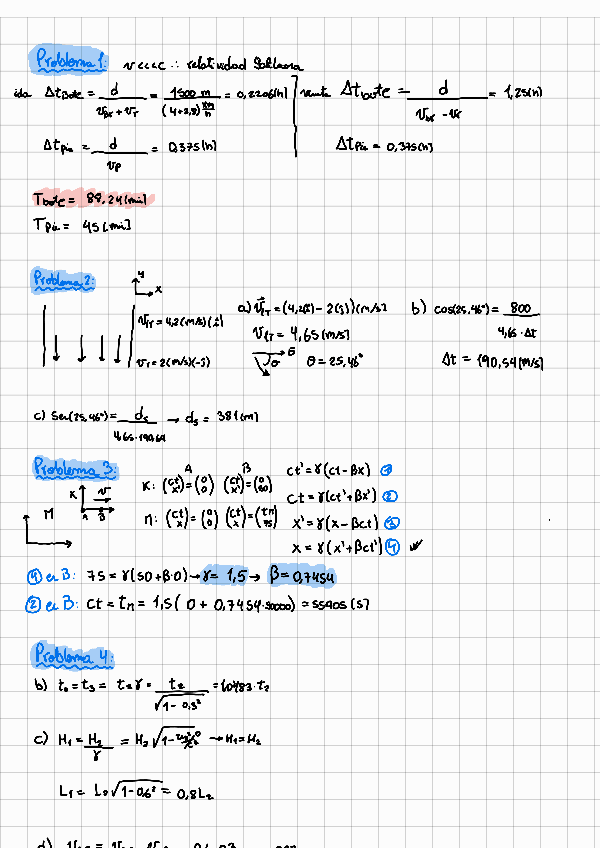 Problema 1: v <<<< c ∴ relatividad Galileana
ida Δt_Bote = d / (v_br + v_r) = 1500 m / (4+2,8) km/h = 0,2206 [h]
vuelta Δt_bote = d / (v_br - v_r) = 1,25 [h]
Δt_Pie = d / v_P = 0,375 [h]
Δt_Pie = 0,375 [h]
T_bote = 88,24 [min]
T_Pie = 45 [min]
Problema 2:
y
x
v_lr = 4,2 (m/s) (î)
v_T = 2 (m/s) (-ĵ)
a) v_lT = (4,2(î) - 2(ĵ)) (m/s)
v_lT = 4,65 [m/s]
θ
θ = 25,46°
b) cos(25,46°) = 800 / (4,65 · Δt)
Δt = 190,54 [m/s]
c) Sen(25,46°) = d_s / (4,65 · 190,54) → d_s = 381 (m)
Problema 3:
M K v A B
A B
K: (ct' x') = (0 0) (ct' x') = (0 50)
M: (ct x) = (0 0) (ct x) = (t_M 75)
ct' = γ(ct - βx) ①
ct = γ(ct' + βx') ②
x' = γ(x - βct) ③
x = γ(x' + βct') ④
④ en B: 75 = γ(50 + β·0) → γ = 1,5 → β = 0,7454
② en B: ct = t_M = 1,5 ( 0 + 0,7454 · 50000) = 55905 (s)
Problema 4:
b) t_0 = t_3 = t_2 γ = t_2 / √(1 - 0,3²) = 1,0483 · t_2
c) H_1 = H_2 / γ = H_2 √(1 - 0) → H_1 = H_2
L_1 = L_0 √(1 - 0,6²) = 0,8 L_2